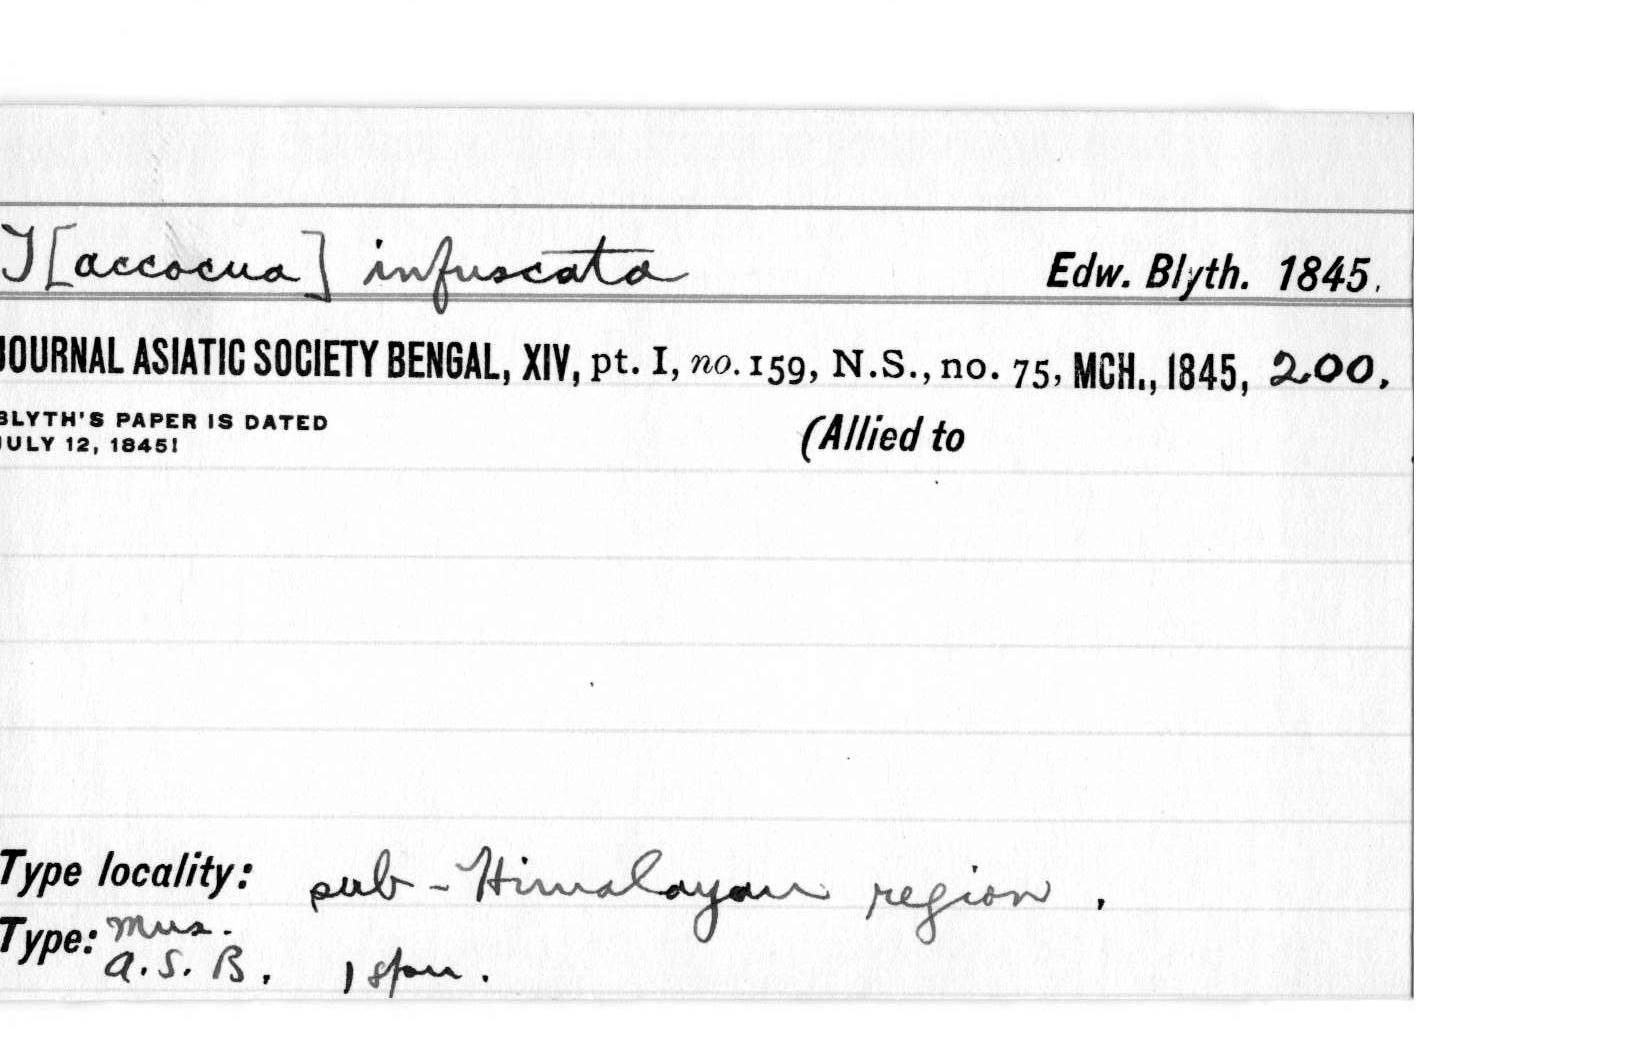 T[accocua] infuscata Edw. Blyth. 1845.
JOURNAL ASIATIC SOCIETY BENGAL, XIV, pt. I, no. 159, N.S., no. 75, MCH., 1845, 200.
BLYTH'S PAPER IS DATED
JULY 12, 1845!
(Allied to
Type locality: sub-Himalayan region.
Type: Mus.
A.S.B. 1 spm.